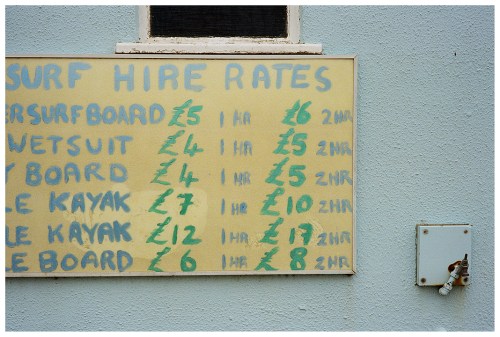 SURF HIRE RATES
ERSURFBOARD £5 1 HR £6 2HR
WETSUIT £4 1 HR £5 2HR
Y BOARD £4 1 HR £5 2HR
LE KAYAK £7 1 HR £10 2HR
LE KAYAK £12 1 HR £17 2HR
E BOARD £6 1 HR £8 2HR